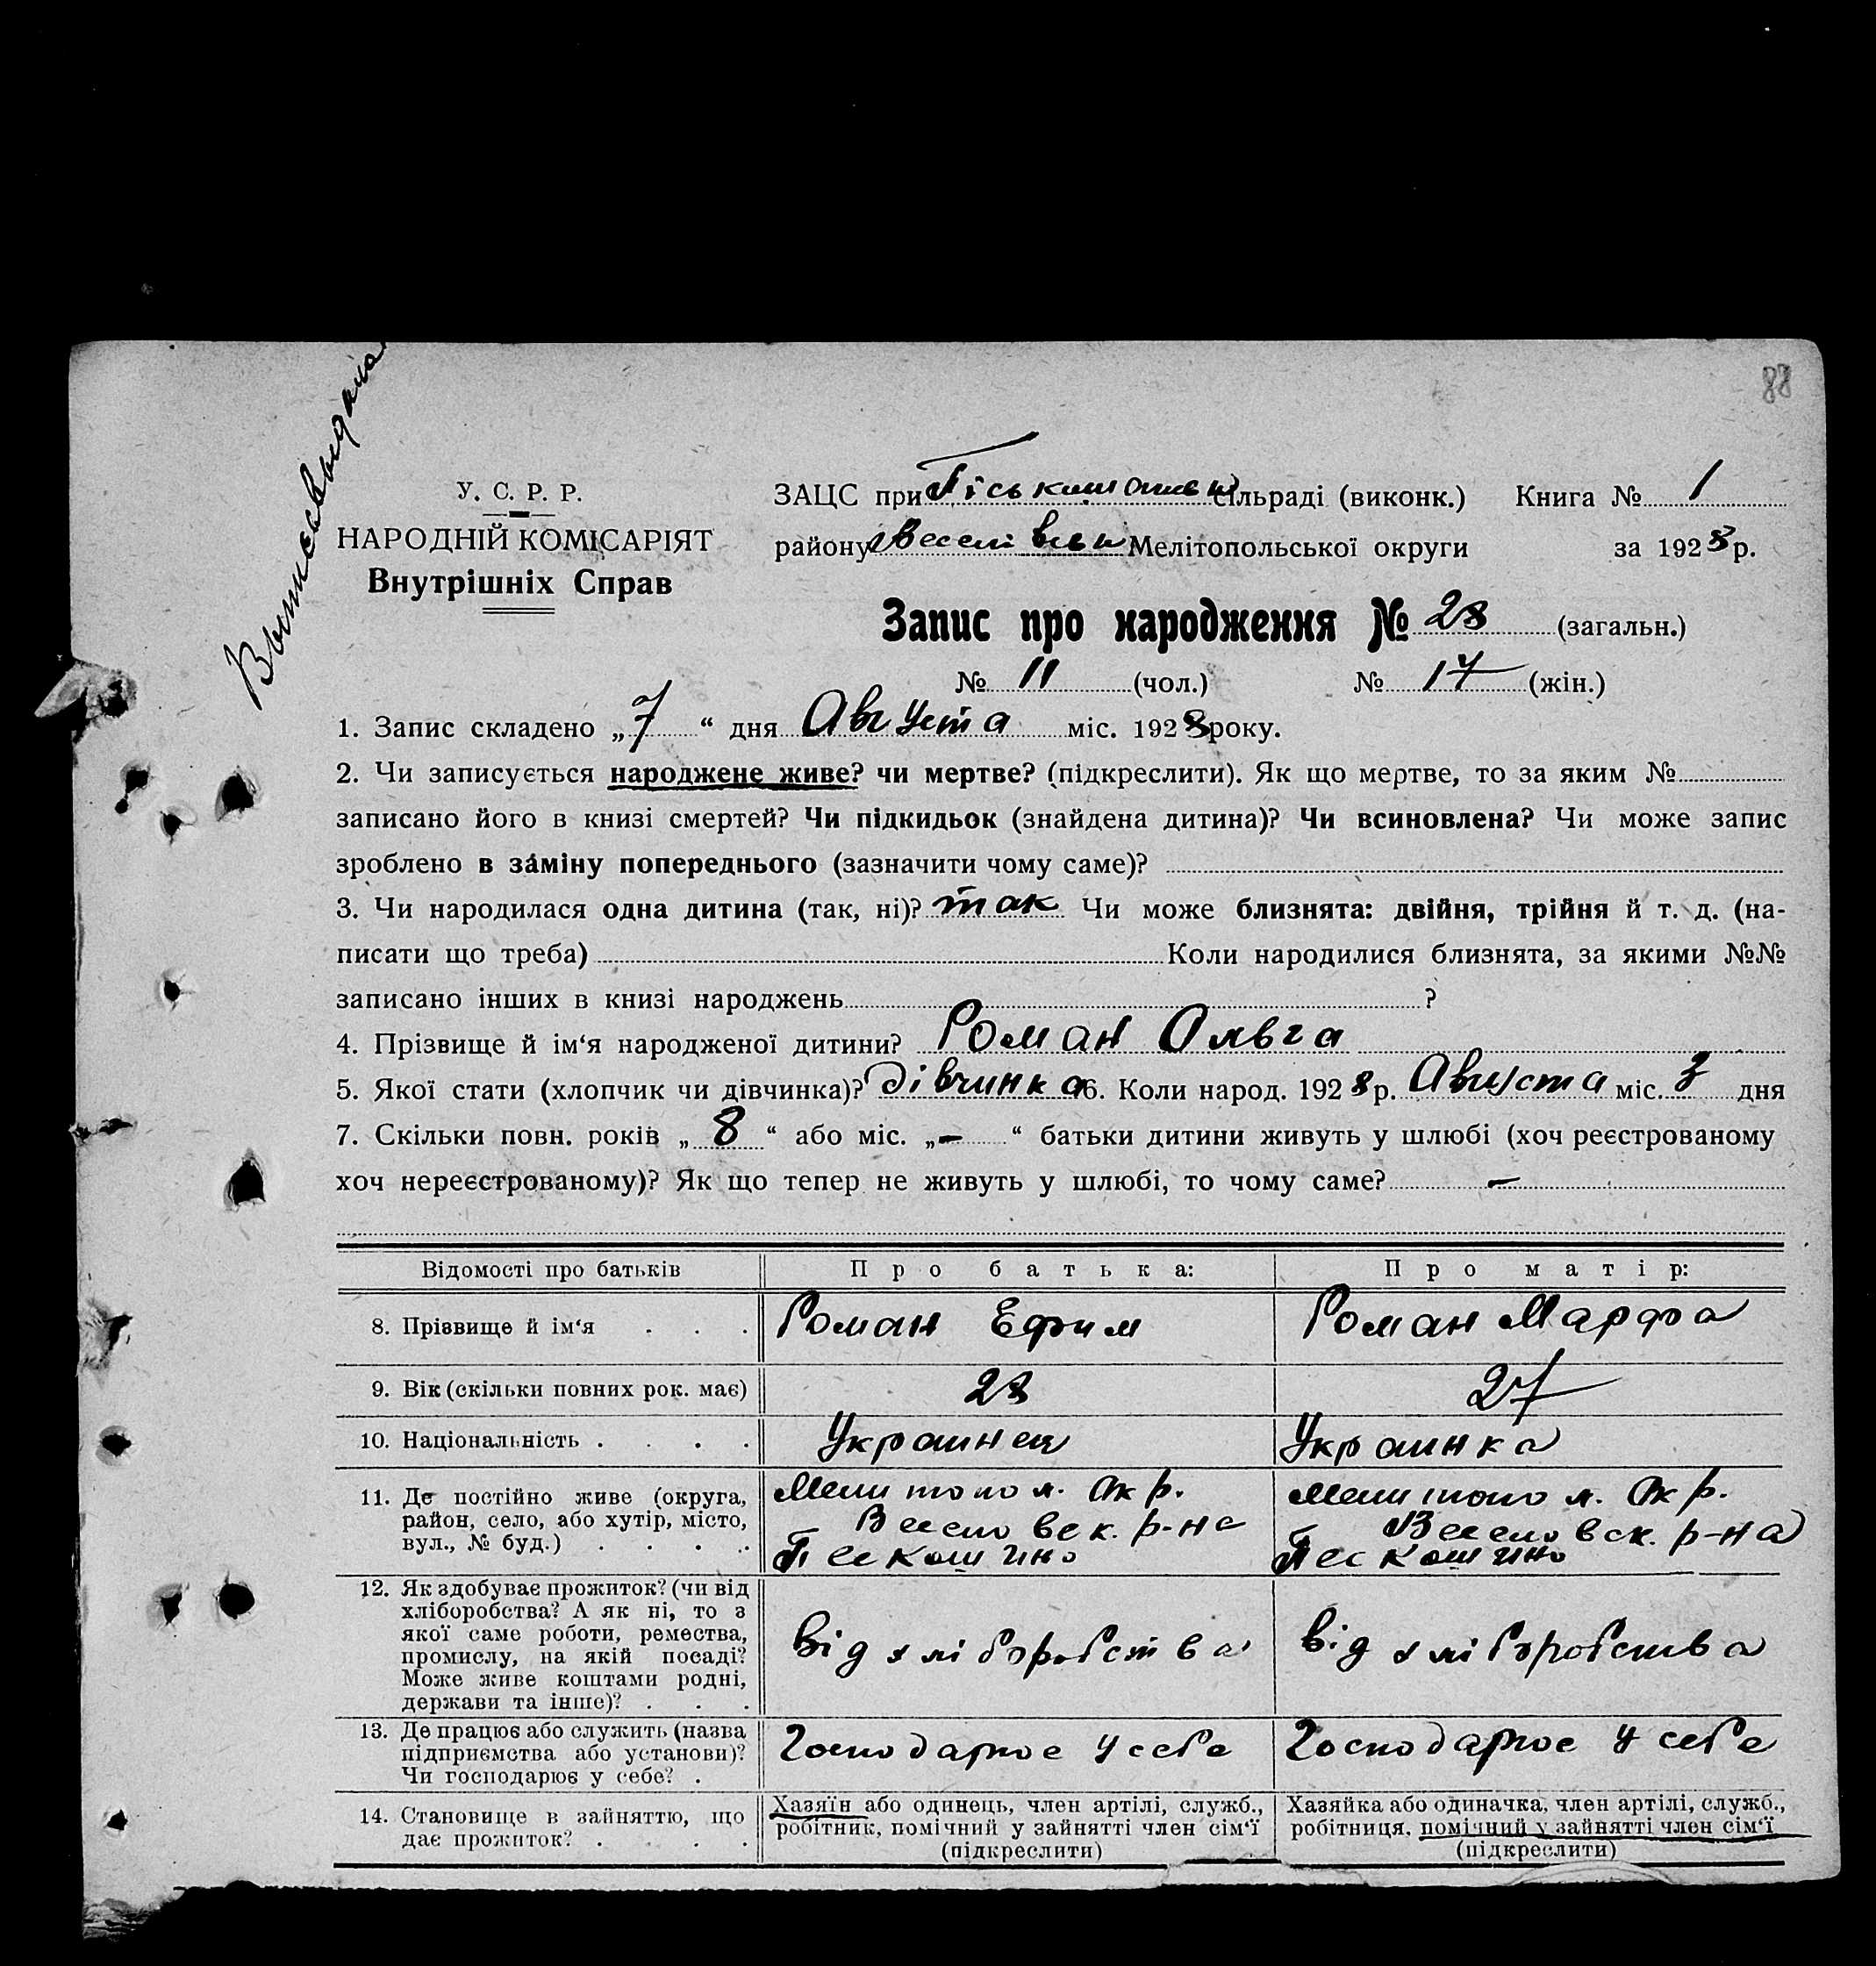 88
У. С. Р. Р.
НАРОДНІЙ КОМІСАРІЯТ
Внутрішніх Справ
ЗАЦС при сільраді (виконк.) Книга № 1
району Мелітопольської округи за 1928 р.
Запис про народження № 28 (загальн.)
№ 11 (чол.) № 17 (жін.)
1. Запис складено „7“ дня Августа міс. 1928 року.
2. Чи записується народжене живе? чи мертве? (підкреслити). Як що мертве, то за яким №
записано його в книзі смертей? Чи підкидьок (знайдена дитина)? Чи всиновлена? Чи може запис
зроблено в за́міну попереднього (зазначити чому саме)?
3. Чи народилася одна дитина (так, ні)? так Чи може близнята: двійня, трійня й т. д. (на-
писати що треба) Коли народилися близнята, за якими №№
записано інших в книзі народжень ?
4. Прізвище й ім‘я народженої дитини? Роман Ольга
5. Якої стати (хлопчик чи дівчинка)? дівчинка 6. Коли народ. 1928 р. Августа міс. 3 дня
7. Скільки повн. років „8“ або міс. „-“ батьки дитини живуть у шлюбі (хоч реєстрованому
хоч нереєстрованому)? Як що тепер не живуть у шлюбі, то чому саме? -
Відомості про батьків Про батька: Про матір:
8. Прізвище й ім‘я . . . Роман Ефим Роман Марфа
9. Вік (скільки повних рок. має) 28 27
10. Національність . . . . Украинец Украинка
11. Де постійно живе (округа,
район, село, або хутір, місто,
вул., № буд.) . . . .
Мелитопол. Окр.
Веселовск. р-на
Пескошино
Мелитопол. Окр.
Веселовск. р-на
Пескошино
12. Як здобуває прожиток? (чи від
хліборобства? А як ні, то з
якої саме роботи, ремества,
промислу, на якій посаді?
Може живе коштами родні,
держави та інше)? . . .
від хліборобства
від хліборобства
13. Де працює або служить (назва
підприємства або установи)?
Чи господарює у себе? .
Господарює у себе
Господарює у себе
14. Становище в зайняттю, що
дає прожиток? . . . .
Хазяїн або одинець, член артілі, служб.,
робітник, помічний у зайнятті член сім‘ї
(підкреслити)
Хазяйка або одиначка, член артілі, служб.,
робітниця, помічний у зайнятті член сім‘ї
(підкреслити)